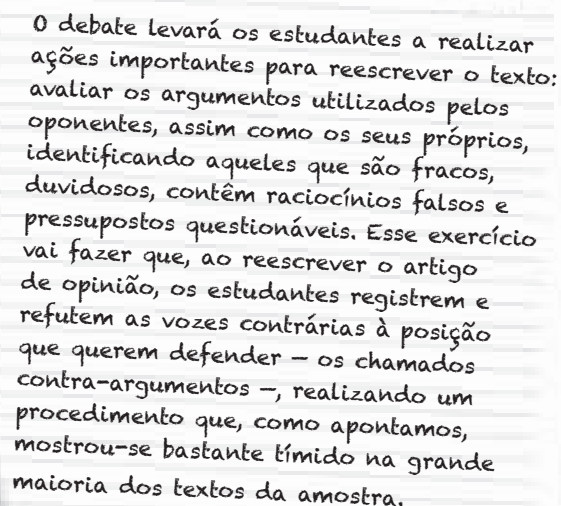 O debate levará os estudantes a realizar
ações importantes para reescrever o texto:
avaliar os argumentos utilizados pelos
oponentes, assim como os seus próprios,
identificando aqueles que são fracos,
duvidosos, contêm raciocínios falsos e
pressupostos questionáveis. Esse exercício
vai fazer que, ao reescrever o artigo
de opinião, os estudantes registrem e
refutem as vozes contrárias à posição
que querem defender – os chamados
contra-argumentos –, realizando um
procedimento que, como apontamos,
mostrou-se bastante tímido na grande
maioria dos textos da amostra.